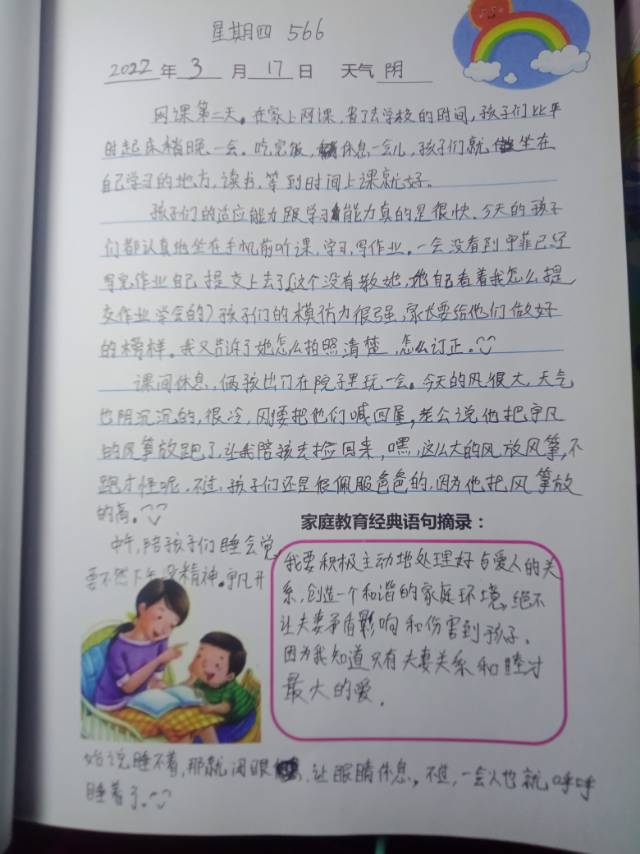 星期四 566
2022年3月17日 天气 阴
网课第二天。在家上网课,省了去学校的时间,孩子们比平
时起床稍晚一会。吃完饭,休息一会儿,孩子们就坐在
自己学习的地方,读书,等到时间上课就好。
孩子们的适应能力跟学习能力真的是很快。今天的孩子
们都认真地坐在手机前听课,学习,写作业。一会没看到宇菲已经
写完作业自己提交上去了(这个没有教她,她自己看着我怎么提
交作业学会的)孩子们的模仿力很强,家长要给他们做好
的榜样。我又告诉了她怎么拍照清楚,怎么订正。
课间休息,俩孩出门在院子里玩一会。今天的风很大,天气
也阴沉沉的,很冷,刚要把他们喊回屋,老公说他把宇凡
的风筝放跑了,让我陪孩去捡回来,嘿,这么大的风放风筝,不
跑才怪呢。不过,孩子们还是很佩服爸爸的,因为他把风筝放
的高。
家庭教育经典语句摘录:
中午,陪孩子们睡会觉,
要不然下午没精神。宇凡开
我要积极主动地处理好与爱人的关
系,创造一个和谐的家庭环境。绝不
让夫妻矛盾影响和伤害到孩子。
因为我知道只有夫妻关系和睦才
最大的爱。
始说睡不着,那就闭眼,让眼睛休息。不过,一会人也就呼呼
睡着了。